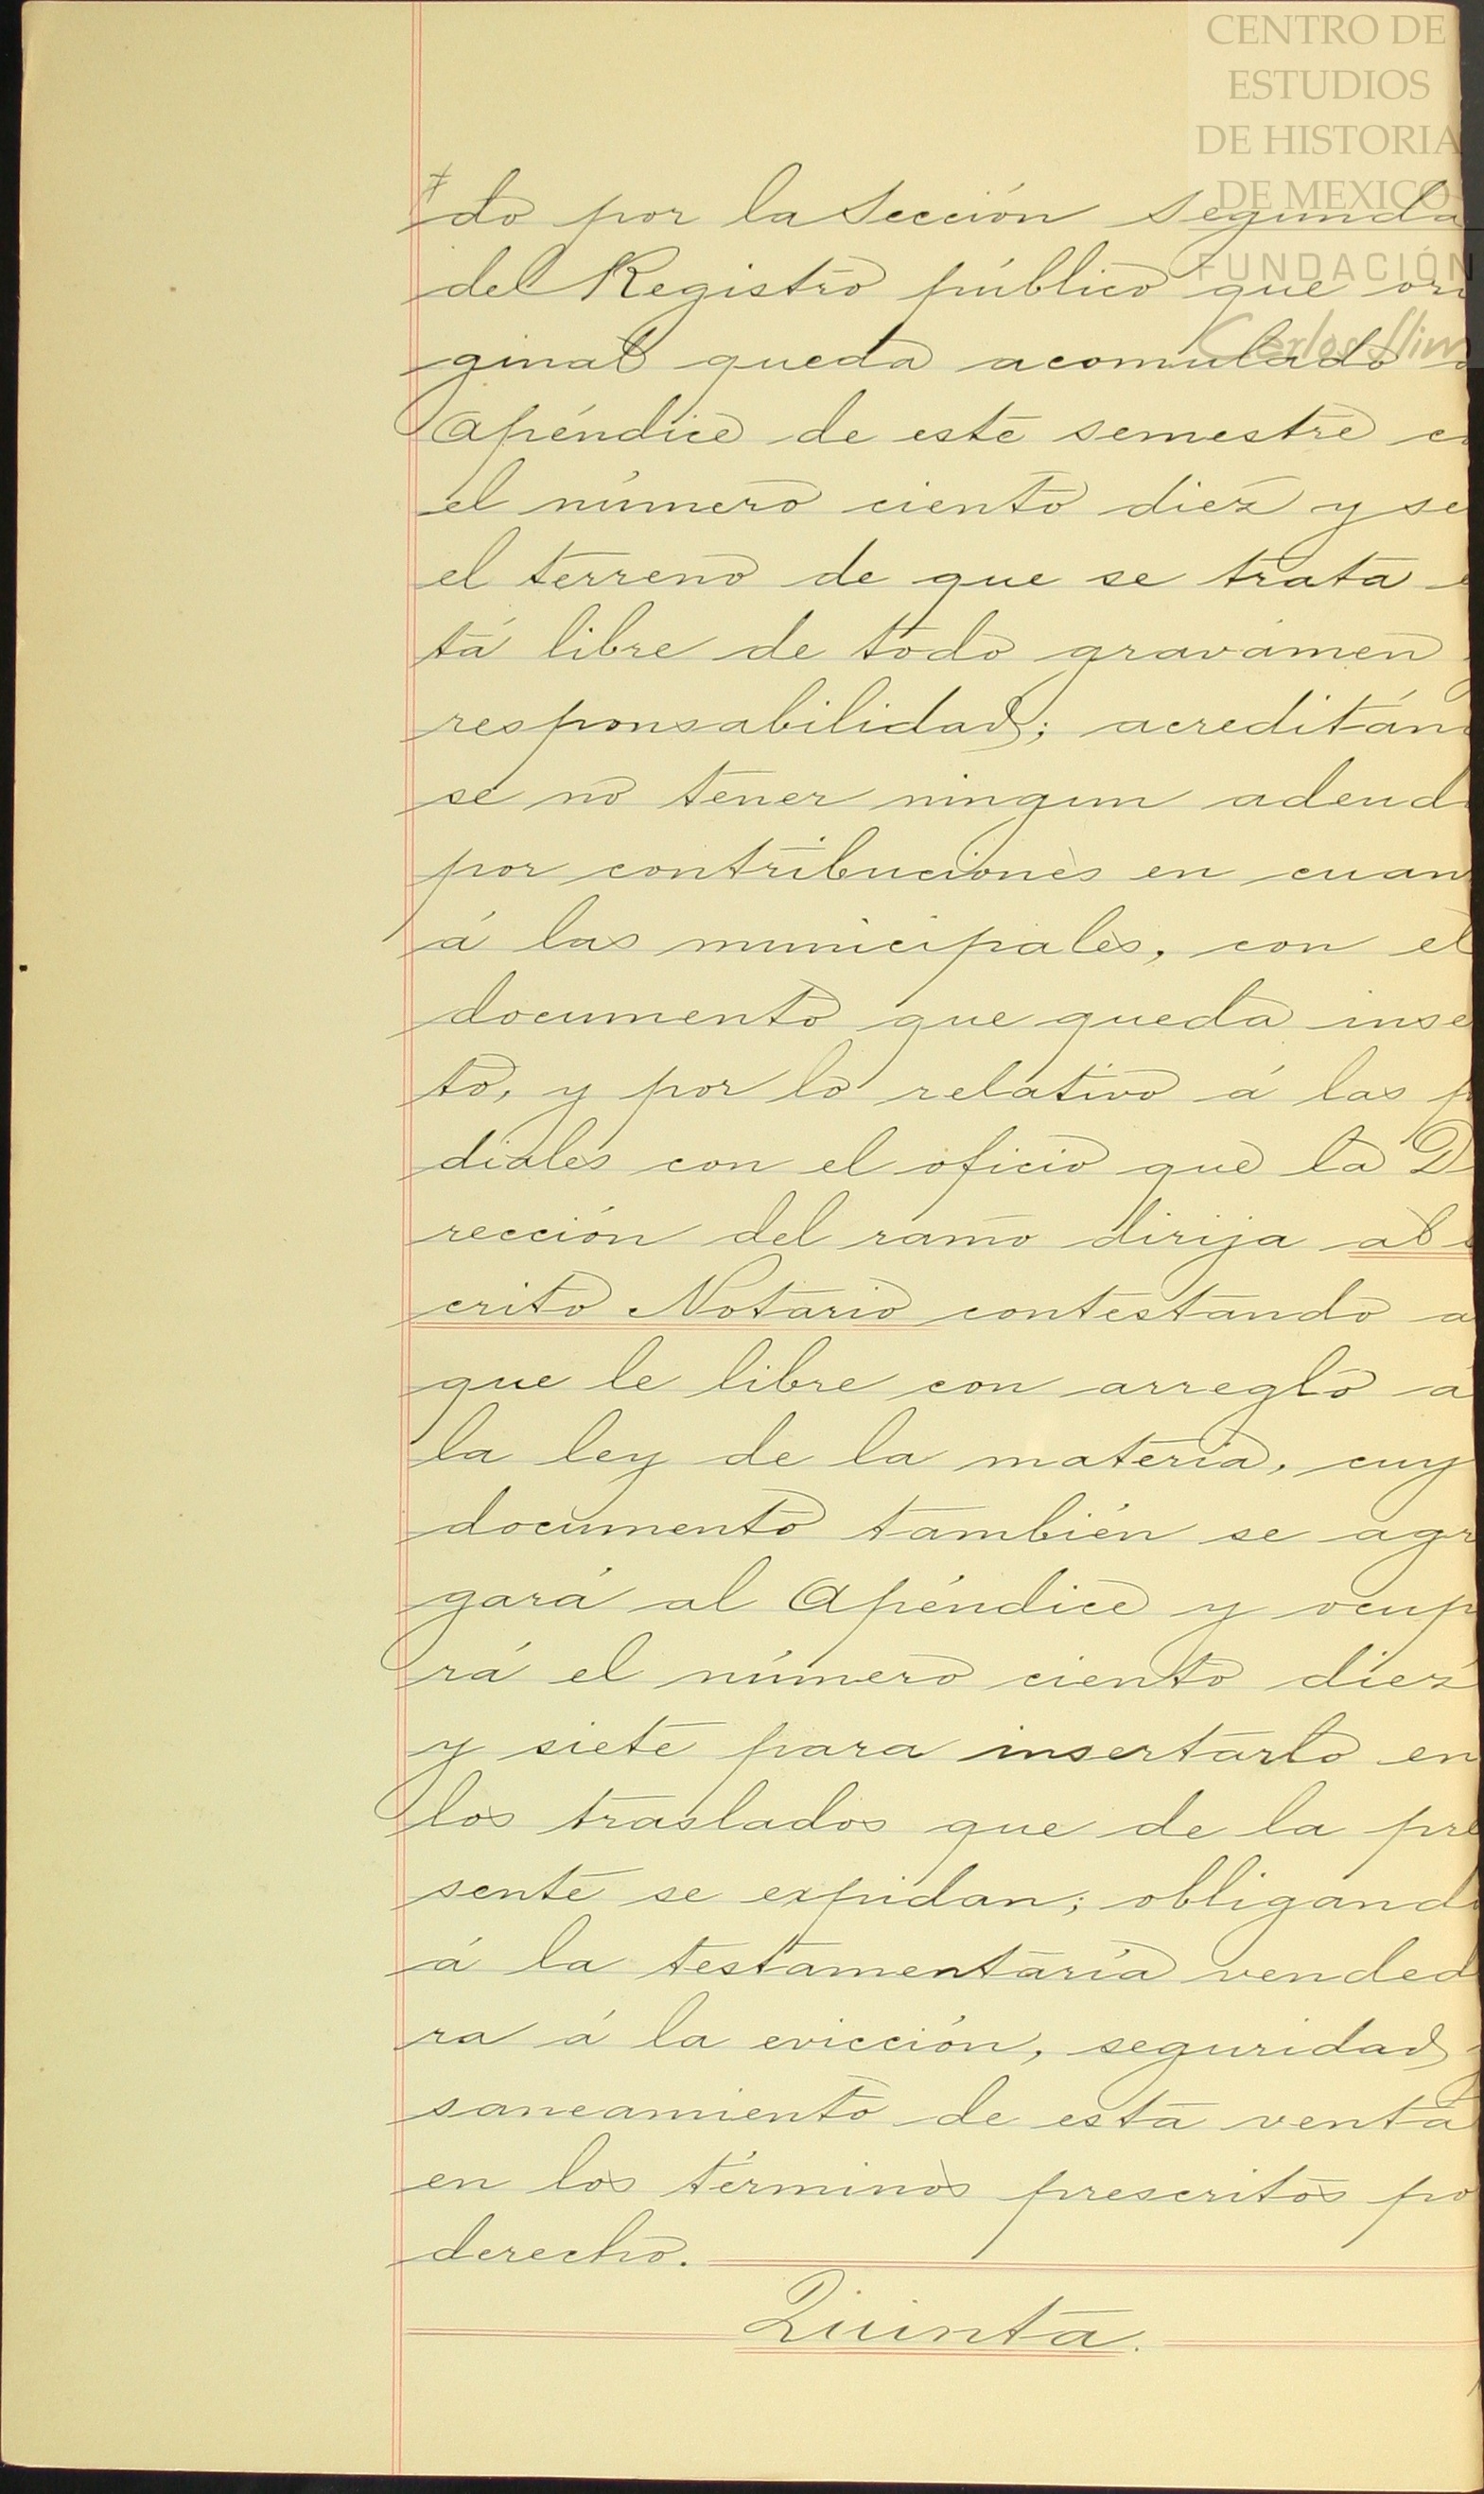 CENTRO DE
ESTUDIOS
DE HISTORIA
DE MEXICO
FUNDACIÓN
Carlos Slim
do por la Sección Segunda
del Registro público que ori
ginal queda acomulado a
Apéndice de este semestre co
el número ciento diez y se
el terreno de que se trata e
tá libre de todo gravámen
responsabilidad; acreditán
se no tener ningun adeud
por contribuciones en cuan
á las municipales, con el
documento que queda inse
to, y por lo relativo á las p
diales con el oficio que la D
rección del ramo dirija al
crito Notario contestando a
que le libre con arreglo á
la ley de la materia, cuy
documento también se agr
gará al Apéndice y ocup
rá el número ciento diez
y siete para insertarlo en
los traslados que de la pre
sente se expidan; obligand
á la testamentaría vended
ra á la evicción, seguridad y
saneamiento de esta venta
en los términos prescritos po
derecho.
Quinta.